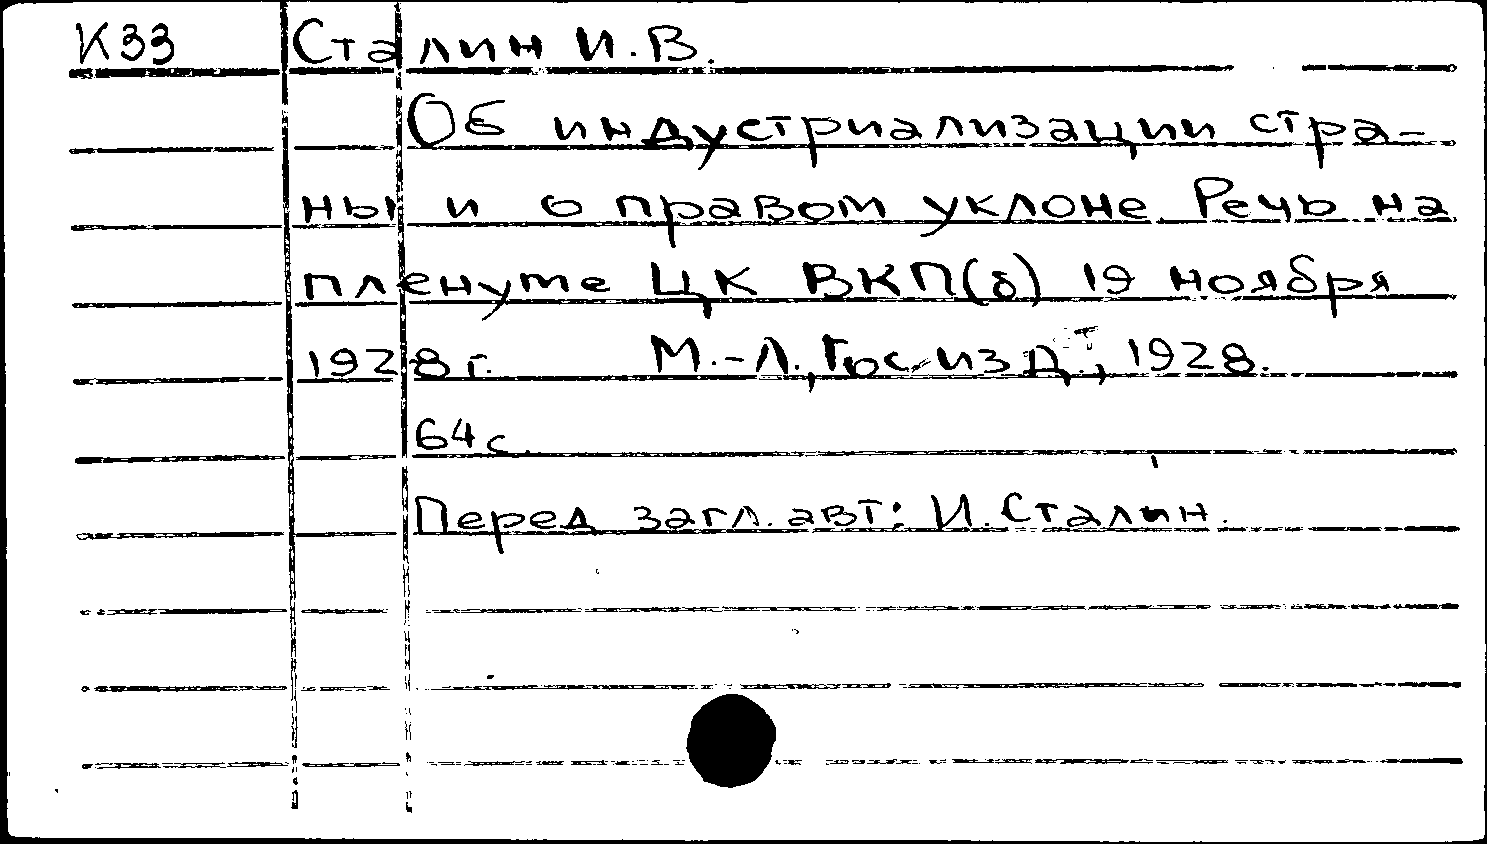 К33 Сталин И.В.
Об индустриализации стра-
ны и о правом уклоне. Речь на
пленуме ЦК ВКП(б) 19 ноября
1928 г. М.-Л., Гос. изд.т, 1928.
64 с.
Перед загл. авт: И. Сталин.